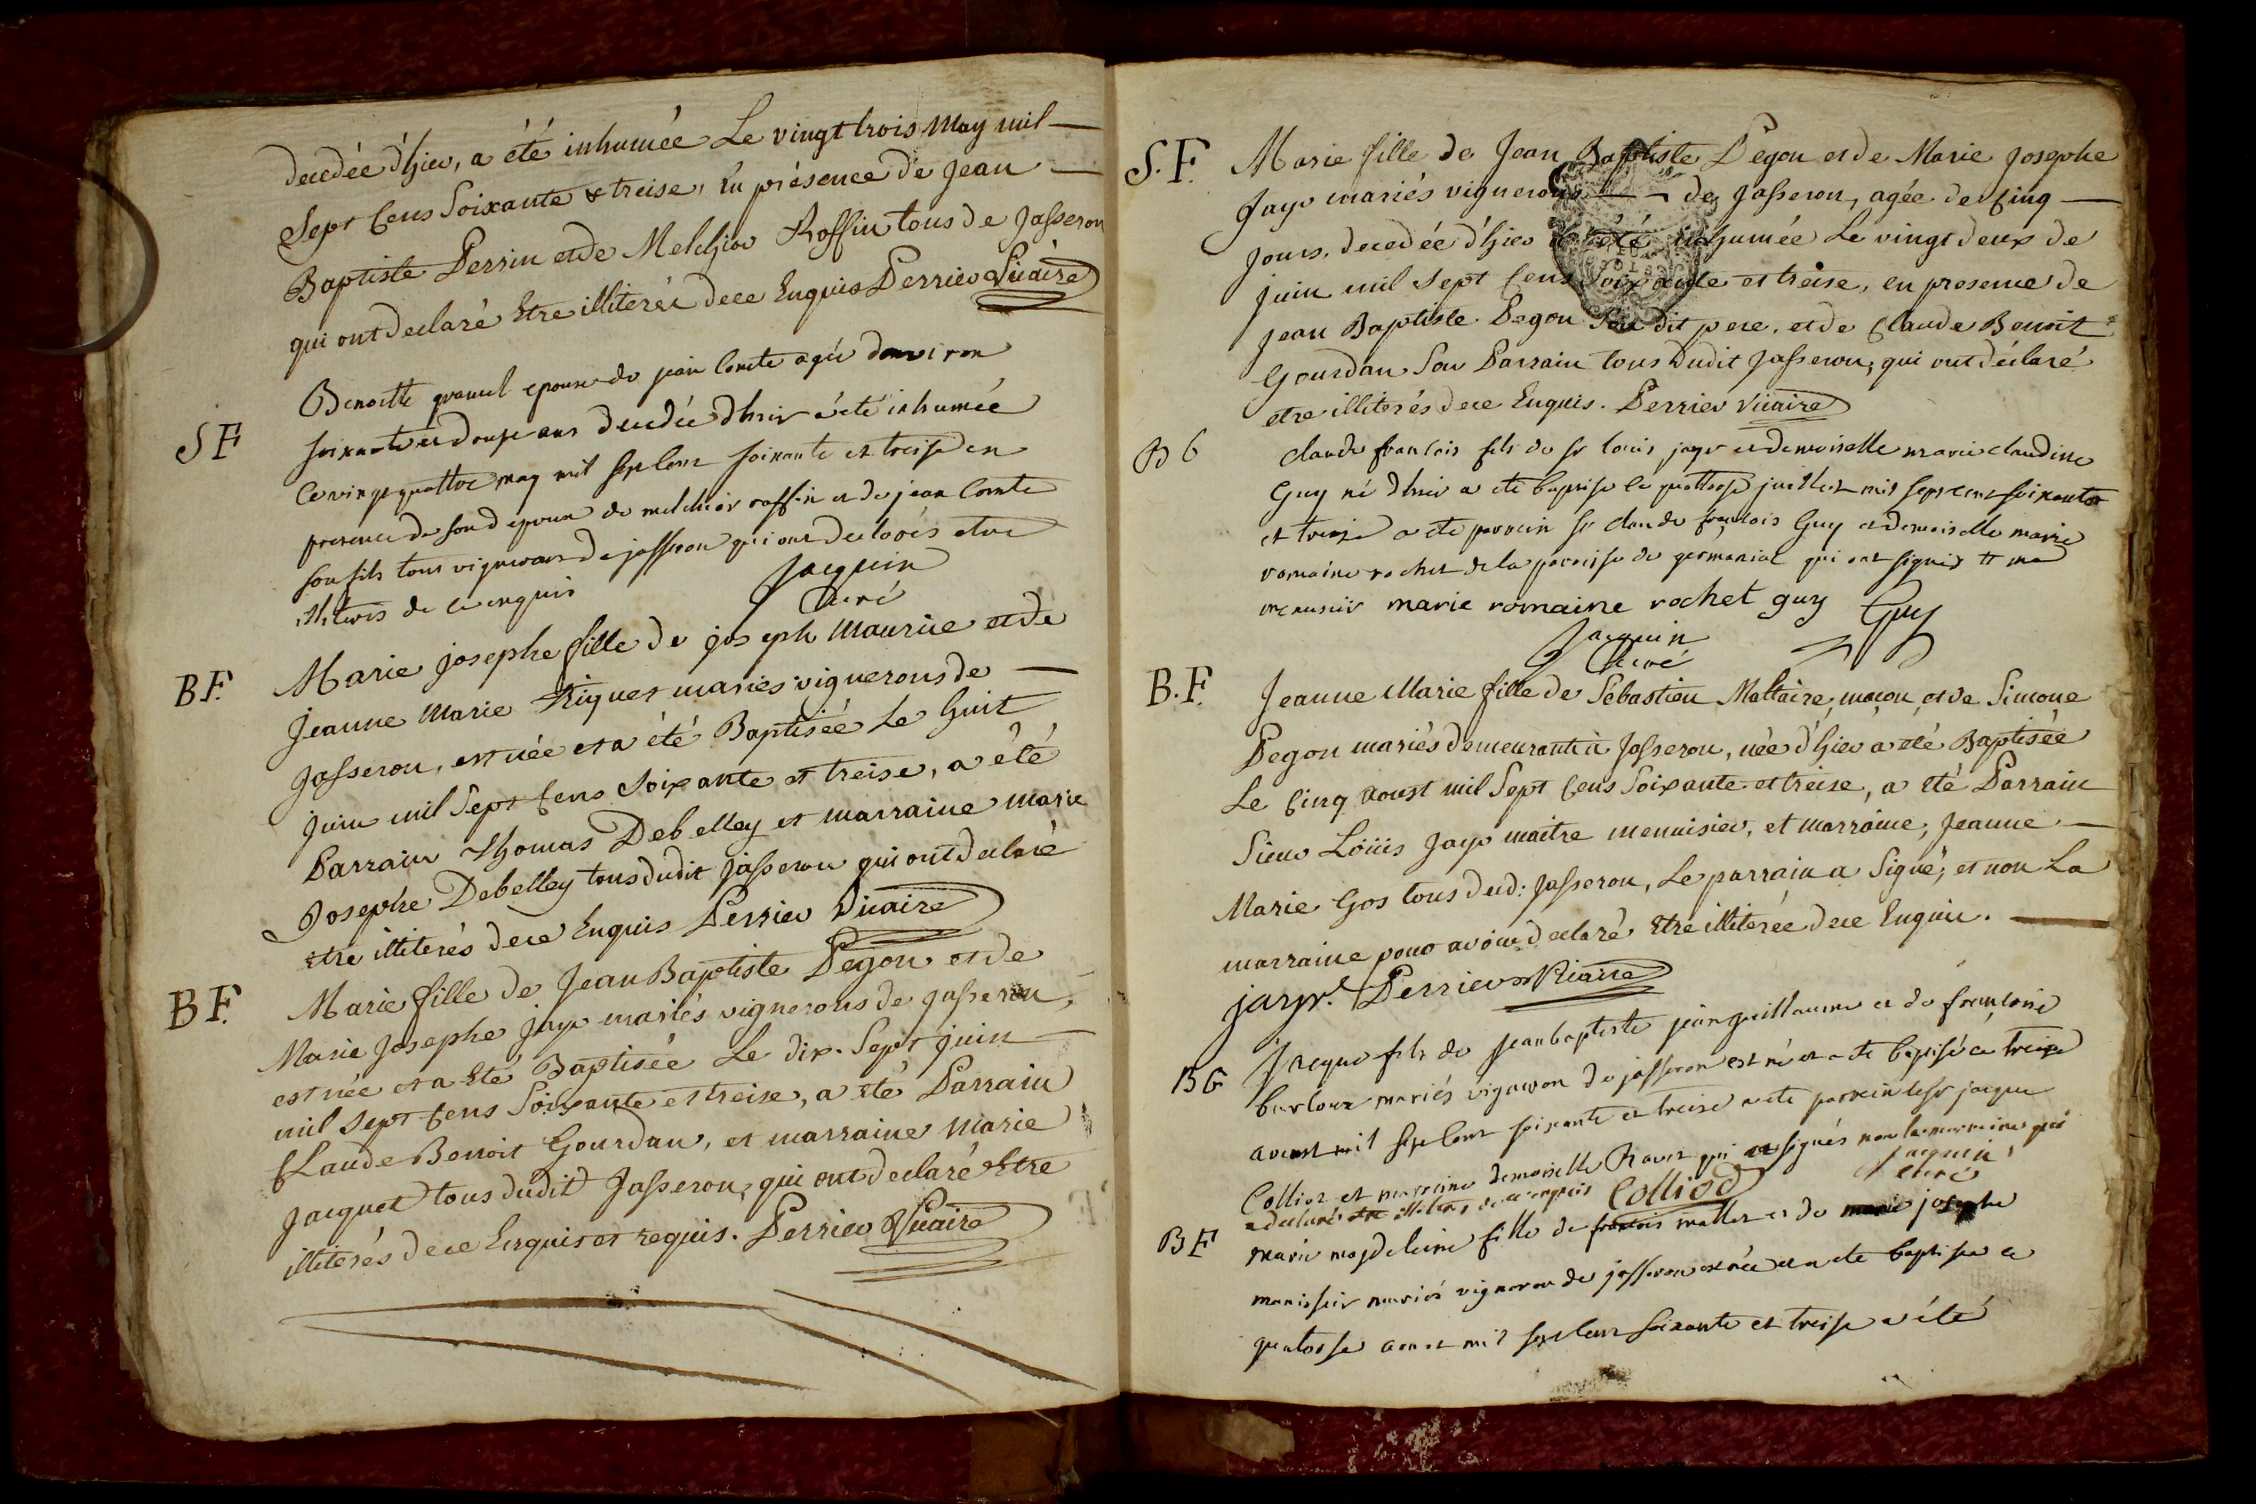 decedée d'hier, a été inhumée Le vingt trois May mil
Sept Cens Soixante & treise, En présence de Jean
Baptiste Perrin et de Melchior Roffin tous de Jasseron
qui ont declaré Etre illiterés dece Enquis Perrier Vicaire
S F
Benoitte epouse de jean Comte agée denviron
soixante et douze ans decedée dhier a été inhumée
ce vingt quattre may mil sept cent soixante et treise en
presence de son d epoux de melchior roffin et de jean Comte
son fils tous vignerons de jasseron qui ont declarés etre
illiterés de ce enquis Jacquin
curé
B F.
Marie josephe fille de joseph Maurice et de
Jeanne Marie Riques mariés vignerons de
Jasseron, est née et a été Baptisée Le huit
Juin mil Sept Cens Soixante et treise, a été
Parrain Thomas Debelley et marraine Marie
Josephe Debelley tous dudit Jasseron qui ont declaré
etre illiterés dece Enquis Perrier Vicaire
B F.
Marie fille de Jean Baptiste Pegon et de
Marie Josephe jayr mariés vignerons de Jasseron,
est née et a Eté Baptisée Le dix-Sept juin
mil Sept Cens Soixante et treise, a Eté Parrain
Claude Benoit Gourdan, et marraine Marie
Jacquet tous dudit Jasseron, qui ont declaré Etre
illiterés dece Enquis et requis. Perrier Vicaire
S. F.
Marie fille de Jean Baptiste Pegon et de Marie Josephe
Jayr mariés vignerons de Jasseron, agée de Cinq
Jours, decedée d'hier a été inhumée Le vingt deux de
juin mil Sept Cens Soixante et treise, en presence de
Jean Baptiste Pegon Son dit pere, et de Claude Benoit
Gourdan Son Parrain tous Dudit Jasseron, qui ont déclaré
etre illiterés dece Enquis. Perrier Vicaire
B G
claude francois fils de sr louis jayr et demoiselle marie claudine
Guy né dhier a ete baptise le quattorse juillet mil sept cent soixante
et treise a ete parrain sr claude françois Guy et demoiselle marie
romaine rochet de la paroisse de germaniat qui ont signés
menusier marie romaine rochet guy Guy
Jacquin
curé
B. F.
Jeanne Marie fille de Sébastien Maltaire, maçon, et de Simone
Pegon mariés demeurants à Jasseron, née d'hier a été Baptisée
Le Cinq Aoust mil Sept Cens Soixante et treise, a Eté Parrain
Sieur Loüis Jayr maitre menuisier, et marraine, Jeanne
Marie Gos tous dud: Jasseron, Le parrain a Signé, et non La
marraine pour avoir declaré Etre illiterée dece Enquise.
jayr. Perrier Vicaire
B G
Jacque fils de Jean baptiste jean guillaume et de françoise
mariés vigneron de jasseron est né et a ete baptisé ce treise
aoust mil sept cent soixante et treise a ete parrain le sr jacque
Colliot et marraine demoiselle Ravet qui a signés non la marraine qui
a declarée etre illiterée de ce enquis Colliod Jacquin
curé
B F
marie magdeleine fille de francois mallet et de marie josephe
mariés vigneron de jasseron est née et a ete baptisee ce
quatorse aoust mil sept cent soixante et treise a été